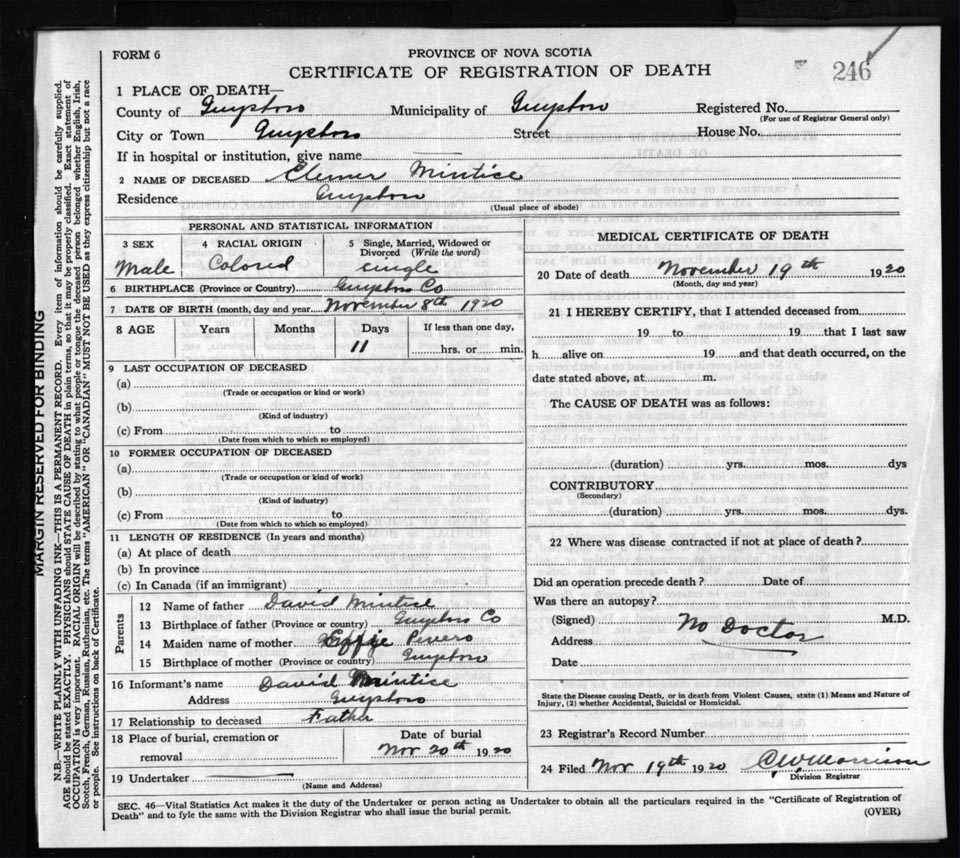 FORM 6
PROVINCE OF NOVA SCOTIA
CERTIFICATE OF REGISTRATION OF DEATH
246
1 PLACE OF DEATH—
County of Guysboro Municipality of Guysboro Registered No.
(For use of Registrar General only)
City or Town Guysboro Street House No.
If in hospital or institution, give name
2 NAME OF DECEASED Elemer Mintice
Residence Guysboro
(Usual place of abode)
PERSONAL AND STATISTICAL INFORMATION
3 SEX 4 RACIAL ORIGIN 5 Single, Married, Widowed or Divorced (Write the word)
Male Colored single
6 BIRTHPLACE (Province or Country) Guysboro Co
7 DATE OF BIRTH (month, day and year) November 8th 1920
8 AGE Years Months Days If less than one day,
11 hrs. or min.
9 LAST OCCUPATION OF DECEASED
(a)
(Trade or occupation or kind or work)
(b)
(Kind of industry)
(c) From to
(Date from which to which so employed)
10 FORMER OCCUPATION OF DECEASED
(a)
(Trade or occupation or kind of work)
(b)
(Kind of industry)
(c) From to
(Date from which to which so employed)
11 LENGTH OF RESIDENCE (In years and months)
(a) At place of death
(b) In province
(c) In Canada (if an immigrant)
Parents
12 Name of father David Mintice
13 Birthplace of father (Province or country) Guysboro Co
14 Maiden name of mother Effie Pevero
15 Birthplace of mother (Province or country) Guysboro
16 Informant's name David Mintice
Address Guysboro
17 Relationship to deceased Father
18 Place of burial, cremation or removal Date of burial
Nov 20th 1920
19 Undertaker
(Name and Address)
MEDICAL CERTIFICATE OF DEATH
20 Date of death November 19th 1920
(Month, day and year)
21 I HEREBY CERTIFY, that I attended deceased from
19 to 19 that I last saw
h alive on 19 and that death occurred, on the
date stated above, at m.
The CAUSE OF DEATH was as follows:
(duration) yrs. mos. dys
CONTRIBUTORY
(Secondary)
(duration) yrs. mos. dys.
22 Where was disease contracted if not at place of death?
Did an operation precede death? Date of
Was there an autopsy?
(Signed) No Doctor M.D.
Address
Date
State the Disease causing Death, or in death from Violent Causes, state (1) Means and Nature of
Injury, (2) whether Accidental, Suicidal or Homicidal.
23 Registrar's Record Number
24 Filed Nov 19th 1920 C W Morrison
Division Registrar
SEC. 46—Vital Statistics Act makes it the duty of the Undertaker or person acting as Undertaker to obtain all the particulars required in the "Certificate of Registration of
Death" and to fyle the same with the Division Registrar who shall issue the burial permit. (OVER)
MARGIN RESERVED FOR BINDING
N.B.—WRITE PLAINLY WITH UNFADING INK—THIS IS A PERMANENT RECORD. Every item of information should be carefully supplied.
AGE should be stated EXACTLY. PHYSICIANS should STATE CAUSE OF DEATH in plain terms, so that it may be properly classified. Exact statement of
OCCUPATION is very important. RACIAL ORIGIN will be described by stating to what people or tongue the deceased person belonged whether English, Irish,
Scotch, French, German, Russian, Ruthenian, etc. The terms "AMERICAN" OR "CANADIAN" MUST NOT BE USED as they express citizenship but not a race
or people. See instructions on back of Certificate.